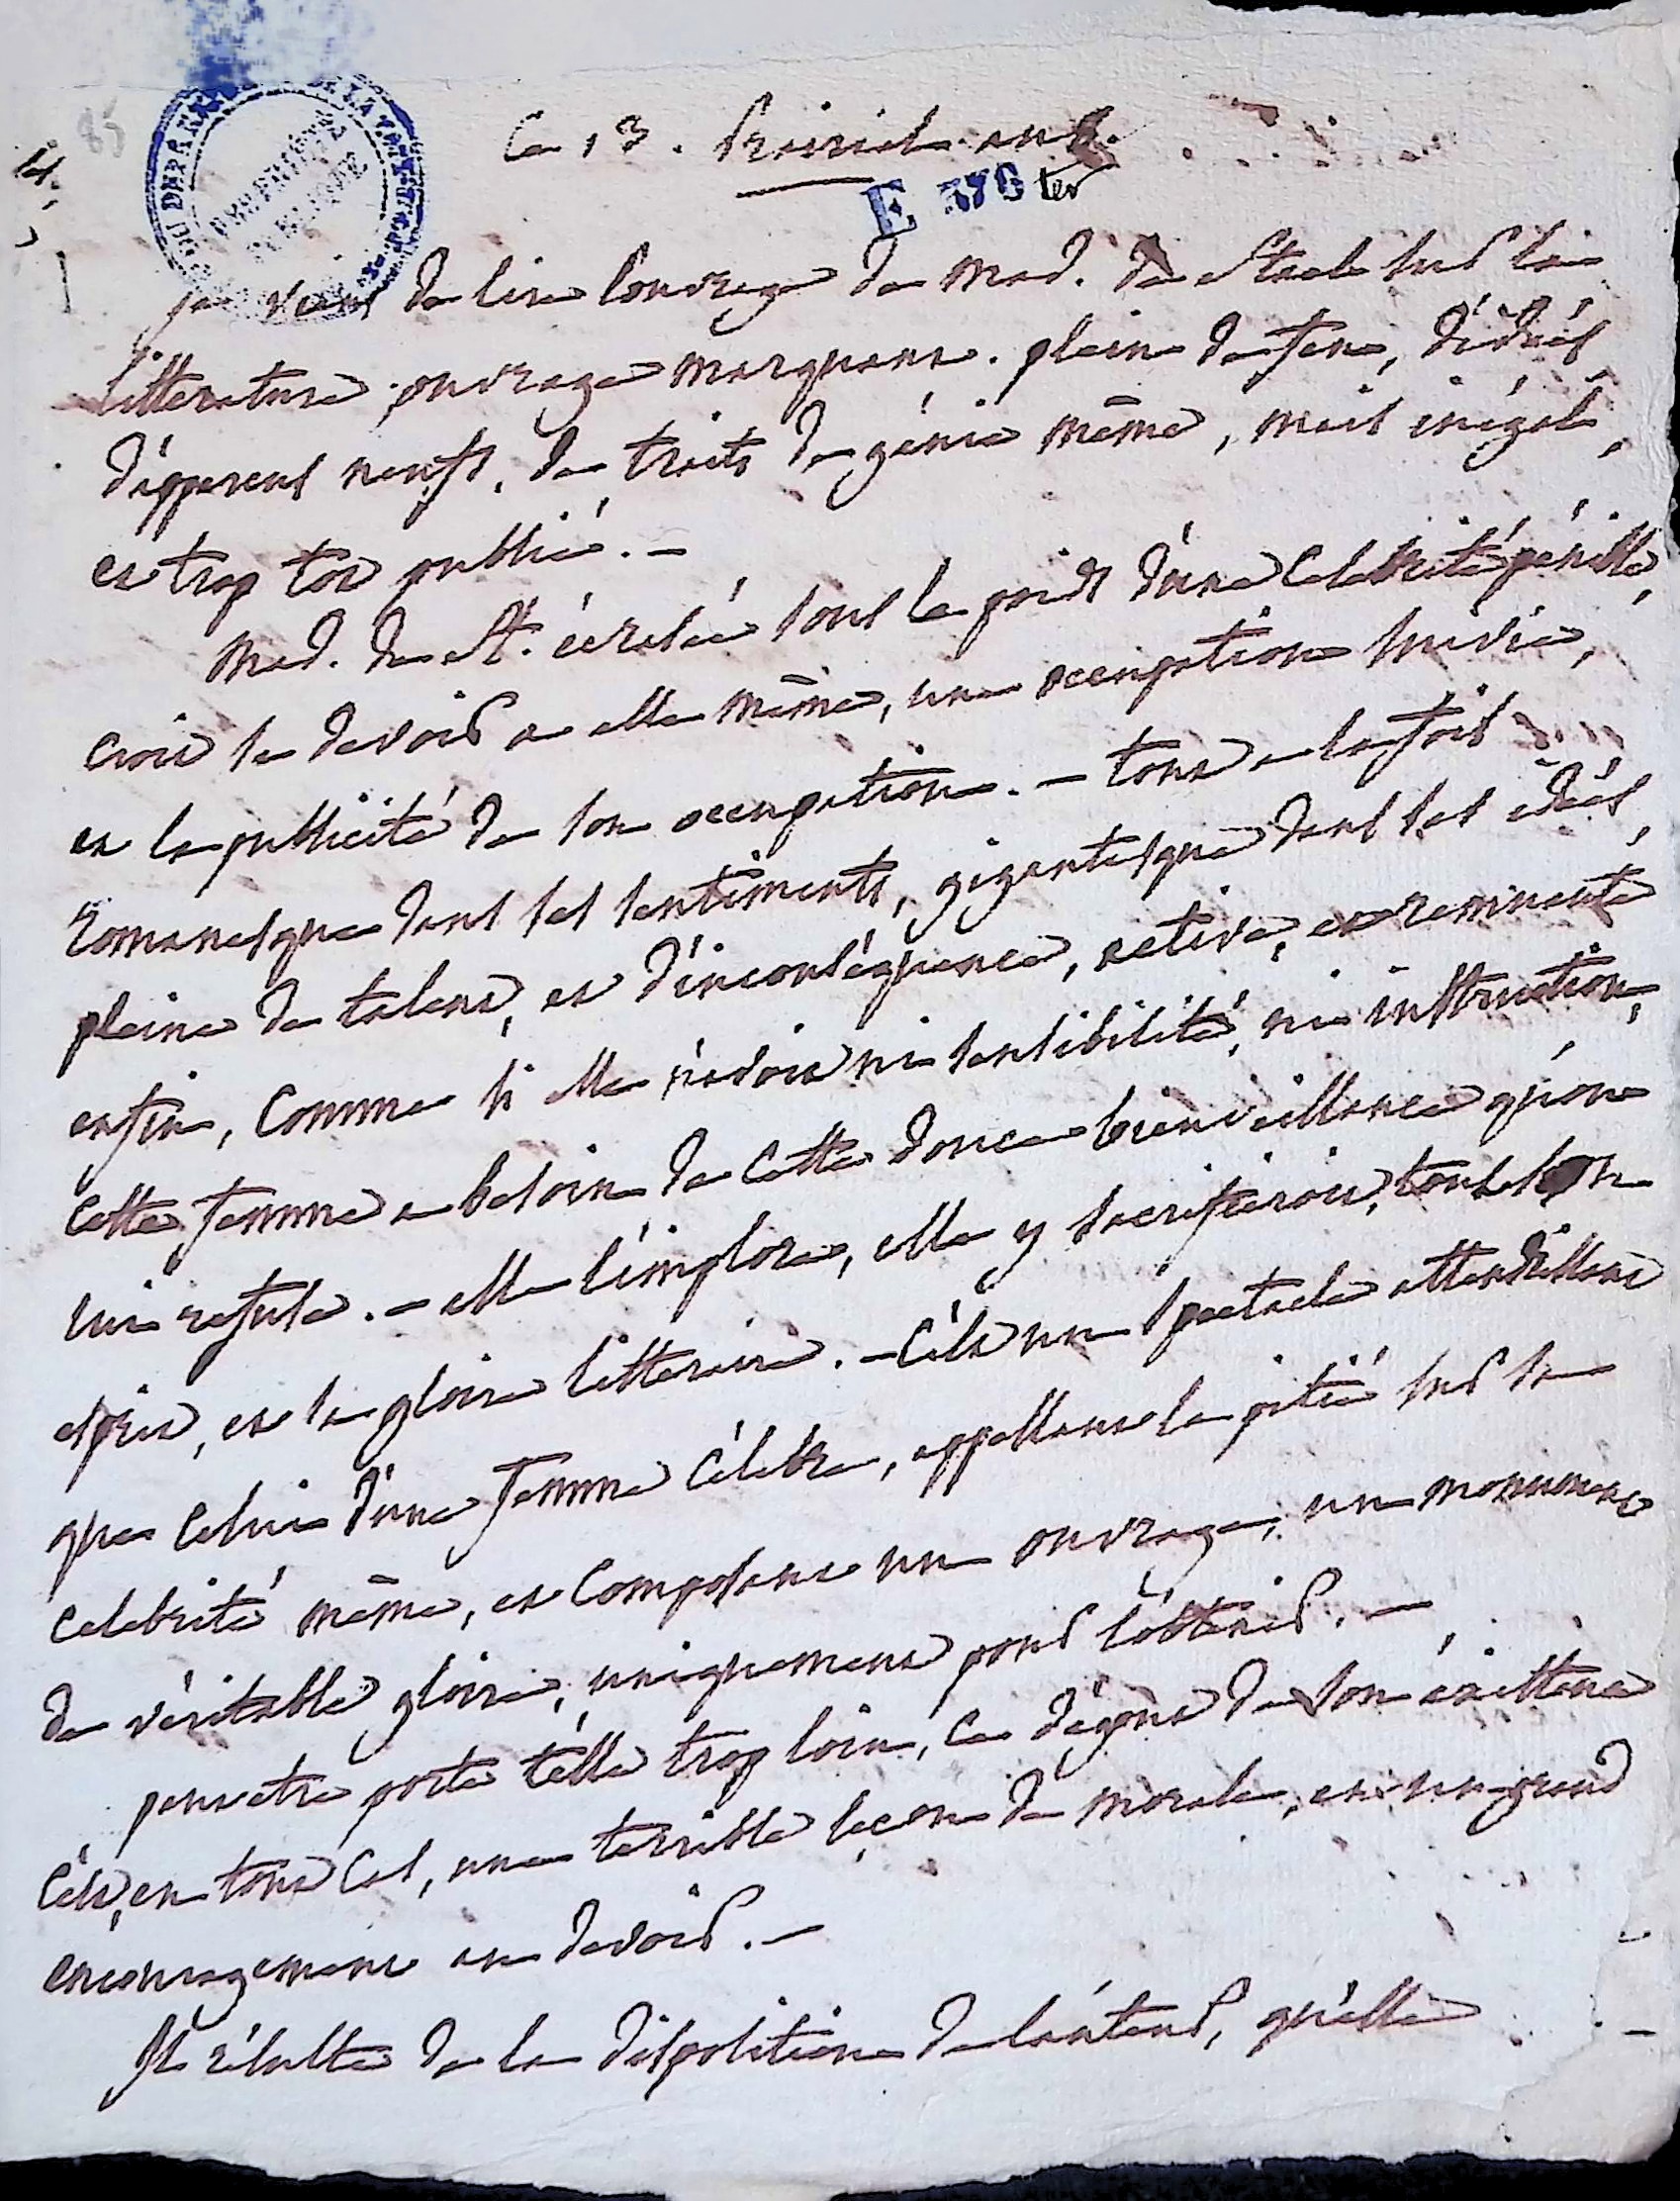 Ce 13. Prairial an 8.
E 376 ter
je viens de lire l'ouvrage de Mad. de Stael sur la
litterature, ouvrage marquant. plein de feu, d'idées,
d'apperçus neufs, de traits de génie même, mais inégal,
et trop tot publié. -
Mad. de St. écrasée sous le poids d'une celebrité pénible,
croit se devoir a elle même, une occupation suivie,
et la publicité de son occupation. - tout a la fois
romanesque dans ses sentiments, gigantesque dans ses idées,
pleine de talent, et d'inconséquence, active, et remuante
enfin, comme si elle n'avoit ni sensibilité, ni instruction,
cette femme a besoin de cette douce bienveillance qu'on
lui refuse. - elle l'implore, elle y sacrifieroit, tout son
esprit, et sa gloire litteraire. - C'est un spectacle attendrissant
que celui d'une femme célebre, appellant la pitié sur sa
celebrité même, et composant un ouvrage, un monument
de véritable gloire, uniquement pour l'obtenir. -
peut etre porte t'elle trop loin, ce dégout de son éxistence
c'est, en tout cas, une terrible leçon de morale, et un grand
encouragement au devoir. -
Il résulte de la disposition de l'auteur, qu'elle